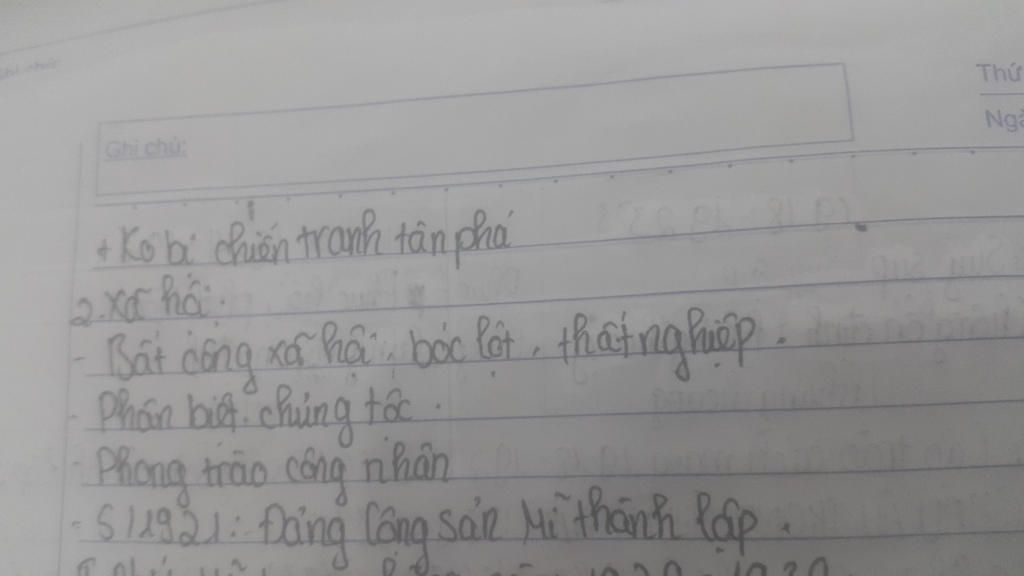 Thứ
Ghi chú:
+ Ko bị chiến tranh tàn phá
2. Xã hội.
- Bất công xã hội, bóc lột, thất nghiệp.
- Phân biệt chủng tộc.
- Phong trào công nhân
- 5/1921: Đảng Cộng sản Mĩ thành lập.
1929-1939